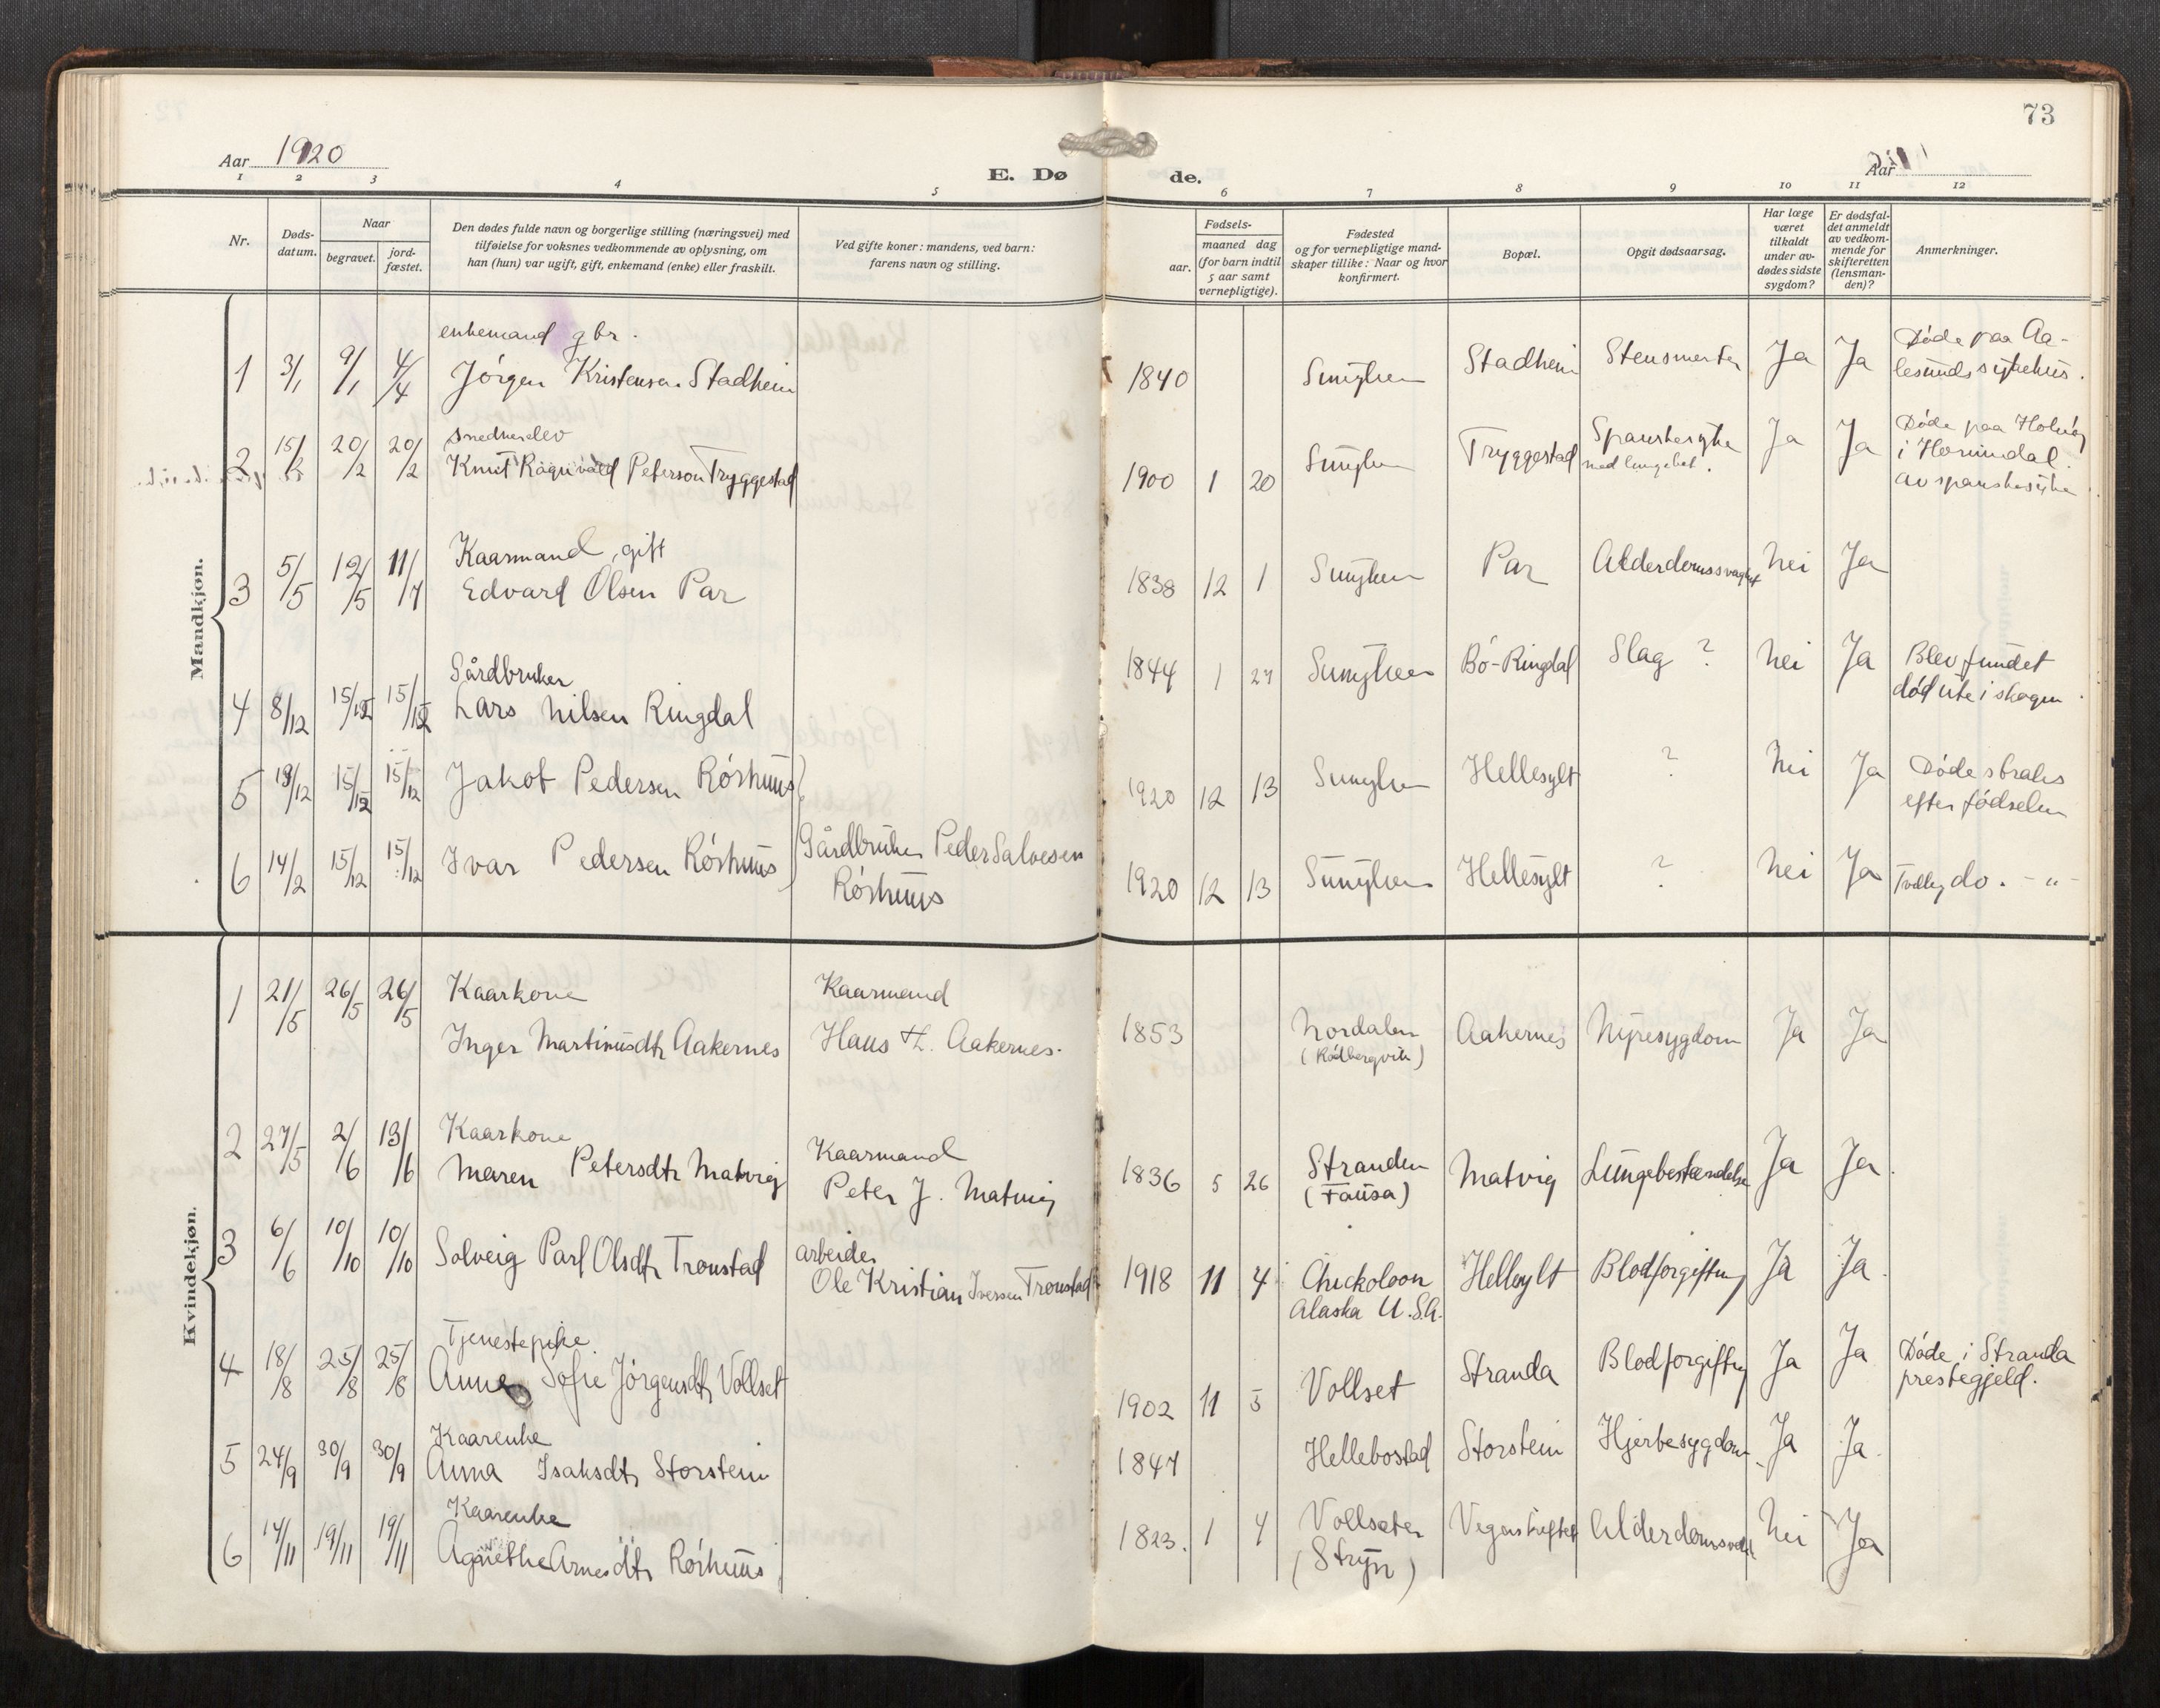 73
Aar 1920
E. Døde.
Aar
1 2 3 4 5 6 7 8 9 10 11 12
Nr.
Døds-
datum.
Naar
begravet.
jord-
fæstet.
Den dødes fulde navn og borgerlige stilling (næringsvei) med
tilføielse for voksnes vedkommende av oplysning, om
han (hun) var ugift, gift, enkemand (enke) eller fraskilt.
Ved gifte koner: mandens, ved barn:
farens navn og stilling.
Fødsels-
aar.
maaned dag
(for barn indtil
5 aar samt
vernepligtige).
Fødested
og for vernepligtige mand-
skaper tillike: Naar og hvor
konfirmert.
Bopæl.
Opgit dødsaarsag.
Har læge
været
tilkaldt
under av-
dødes sidste
sygdom?
Er dødsfal-
det anmeldt
av vedkom-
mende for
skifteretten
(lensman-
den)?
Anmerkninger.
Mandkjøn.
enkemand gbr.
1 3/1 9/1 4/4 Jörgen Kristensen Stadheim 1840 Sunylven Stadheim Stensmerter Ja Ja Döde paa Aa-
lesunds sykehus.
snedkerelev
2 15/2 20/2 20/2 Knut Ragnvald Peterson Tryggestad 1900 1 20 Sunylven Tryggestad Spanskesyke
med lungebet. Ja Ja Döde paa
i Hornindal
av spanskesyke
Kaarmand, gift
3 5/5 12/5 11/7 Edvard Olsen Par 1838 12 1 Sunylven Par Alderdomssvaghet Nei Ja
Gårdbruker
4 8/12 15/12 15/12 Lars Nilsen Ringdal 1844 1 27 Sunylven Bö-Ringdal Slag ? Nei Ja Blev fundet
död ute i skogen
5 13/12 15/12 15/12 Jakob Pedersen Rörhuus 1920 12 13 Sunylven Hellesylt ? Nei Ja Döde straks
efter födselen
6 14/12 15/12 15/12 Ivar Pedersen Rörhuus Gårdbruker Peder Salvesen
Rörhuus 1920 12 13 Sunylven Hellesylt ? Nei Ja Tvilling do. - " -
Kvindekjøn.
1 21/5 26/5 26/5 Kaarkone
Inger Martinusdtr Aakernes Kaarmand
Hans H. Aakernes. 1853 Nordalen
(Rödbergvik) Aakernes Nyresygdom Ja Ja
2 27/5 2/6 13/6 Kaarkone
Maren Petersdtr Matvig Kaarmand
Peter J. Matvig 1836 5 26 Stranden
(Fausa) Matvig Lungebetændelse Ja Ja.
3 6/6 10/10 10/10 Solveig Parl Olsdtr Tronstad arbeider
Ole Kristian Iversen Tronstad 1918 11 4 Chickoloon
Alaska U.S.A. Hellesylt Blodforgiftning Ja Ja.
Tjenestepike
4 18/8 25/8 25/8 Anna Sofie Jörgensdtr Vollset 1902 11 5 Vollset Stranda Blodforgiftning Ja Ja Döde i Stranda
prestegjeld.
Kaarenke
5 24/9 30/9 30/9 Anna Isaksdtr Storstein 1847 Hellebostad Storstein Hjertesygdom Ja Ja.
Kaarenke
6 14/11 19/11 19/11 Agnethe Arnesdtr Rörhuus 1823. 1 4 Vollseter
(Stryn) Alderdomssvakh. Nei Ja